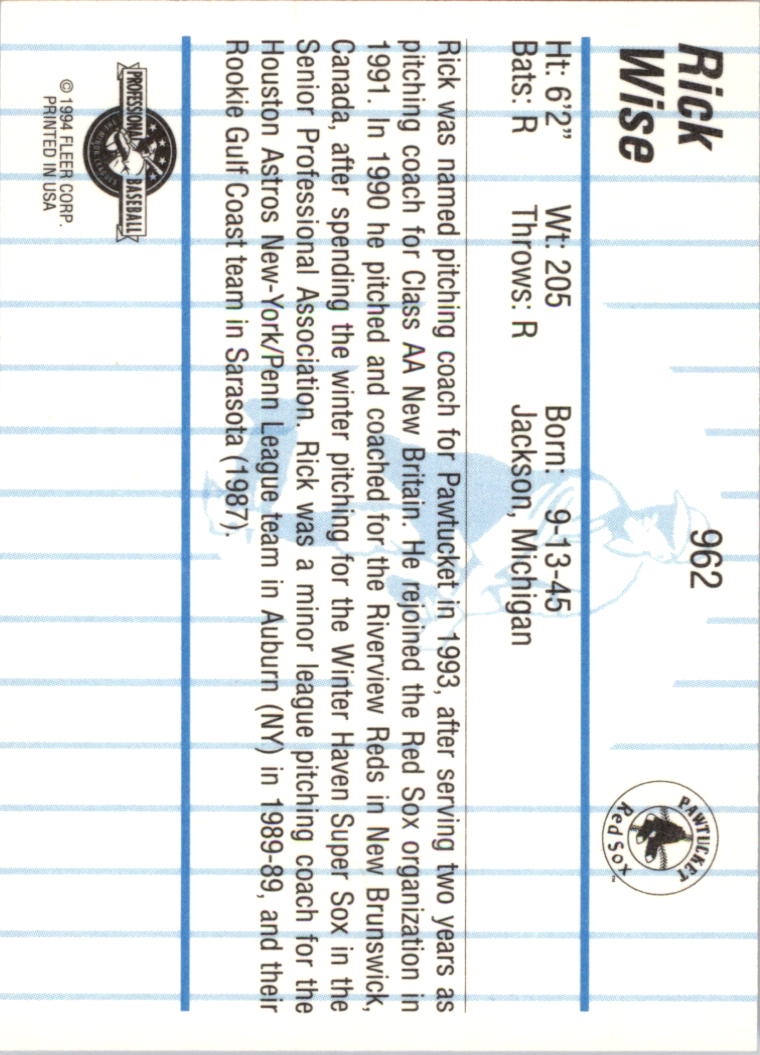 Rick
Wise
962
PAWTUCKET
Red Sox
™
Ht: 6'2" Wt: 205 Born: 9-13-45
Bats: R Throws: R Jackson, Michigan
Rick was named pitching coach for Pawtucket in 1993, after serving two years as
pitching coach for Class AA New Britain. He rejoined the Red Sox organization in
1991. In 1990 he pitched and coached for the Riverview Reds in New Brunswick,
Canada, after spending the winter pitching for the Winter Haven Super Sox in the
Senior Professional Association. Rick was a minor league pitching coach for the
Houston Astros New-York/Penn League team in Auburn (NY) in 1989-89, and their
Rookie Gulf Coast team in Sarasota (1987).
PROFESSIONAL BASEBALL
© 1994 FLEER CORP.
PRINTED IN USA